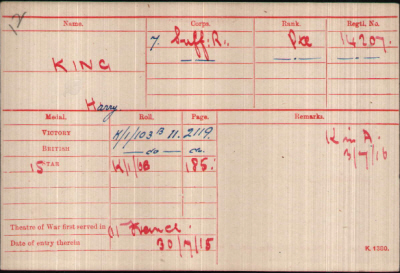 Name. Corps. Rank. Regtl. No.
7. Suff. R. Pte 14207.
KING
Harry
Medal. Roll. Page. Remarks.
VICTORY K/1/103 B 11. 2119.
BRITISH —do— do. K in A.
15 STAR K/1/8B 185. 3/7/16
Theatre of War first served in 01 France.
Date of entry therein 30/7/15
K. 1380.